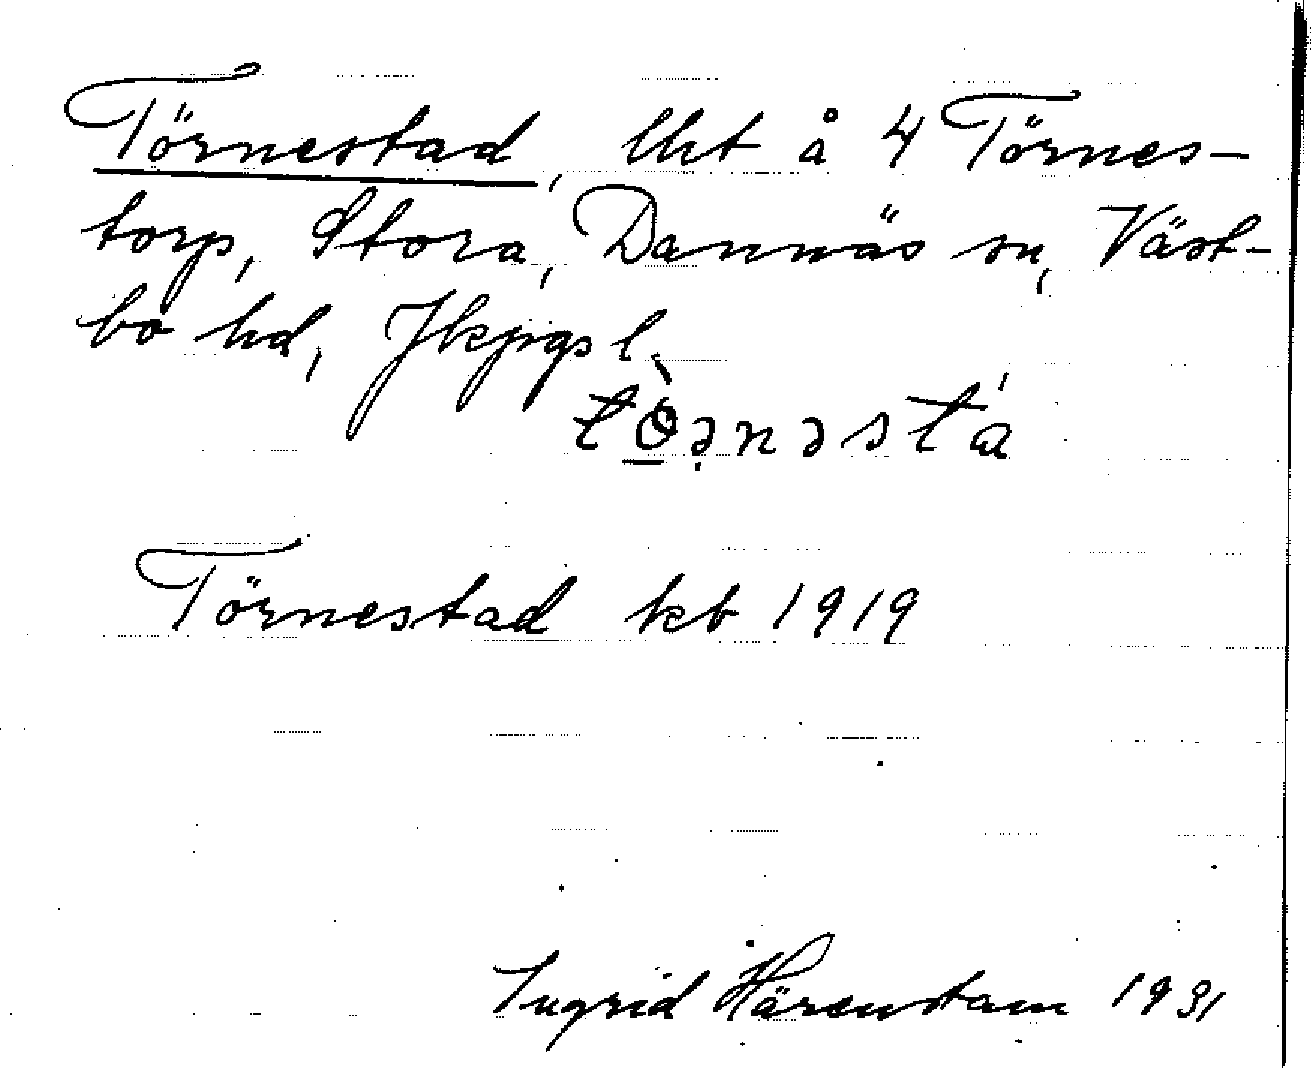 Törnestad, lht å 4 Törnes-
torp, Stora, Dannäs sn, Väst-
bo hd, Jkpgs l.
Törnestad kb 1919
Ingrid Härenstam 1931